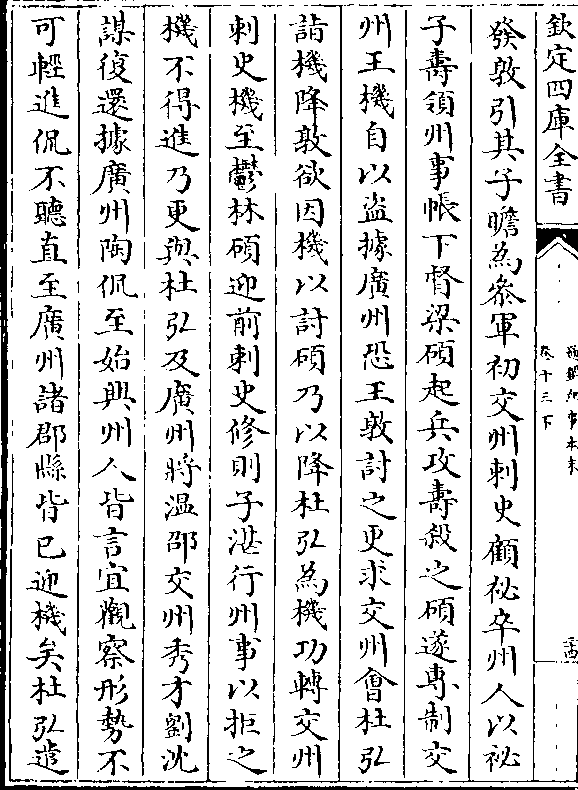 欽定四庫全書
通鑑紀事本末
卷十三下
發敦引其子瞻為參軍初交州刺史顧祕卒州人以祕
子壽領州事帳下督梁碩起兵攻壽殺之碩遂專制交
州王機自以盜據廣州恐王敦討之更求交州會杜弘
詣機降敦欲因機以討碩乃以降杜弘為機功轉交州
刺史機至鬱林碩迎前刺史修則子湛行州事以拒之
機不得進乃更與杜弘及廣州將溫邵交州秀才劉沈
謀復還據廣州陶侃至始興州人皆言宜觀察形勢不
可輕進侃不聽直至廣州諸郡縣皆已迎機矣杜弘遣